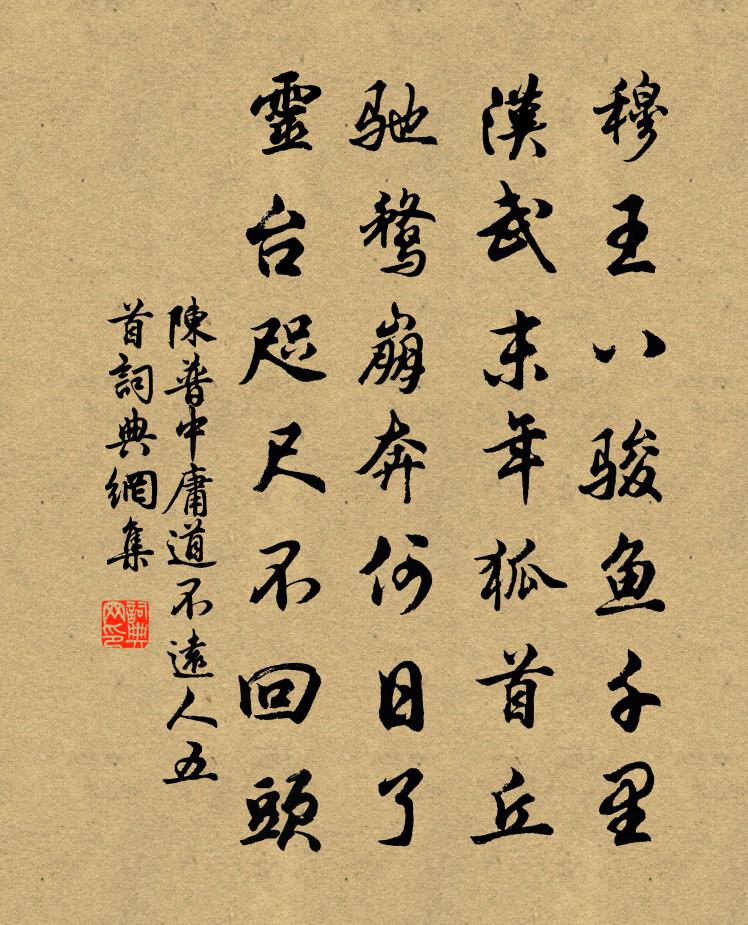 穆王八骏鱼千里
漢武末年狐首丘
驰騖崩奔何日了
靈台咫尺不回頭
陳普中庸道不遠人五
首詞典網集
詞典网印